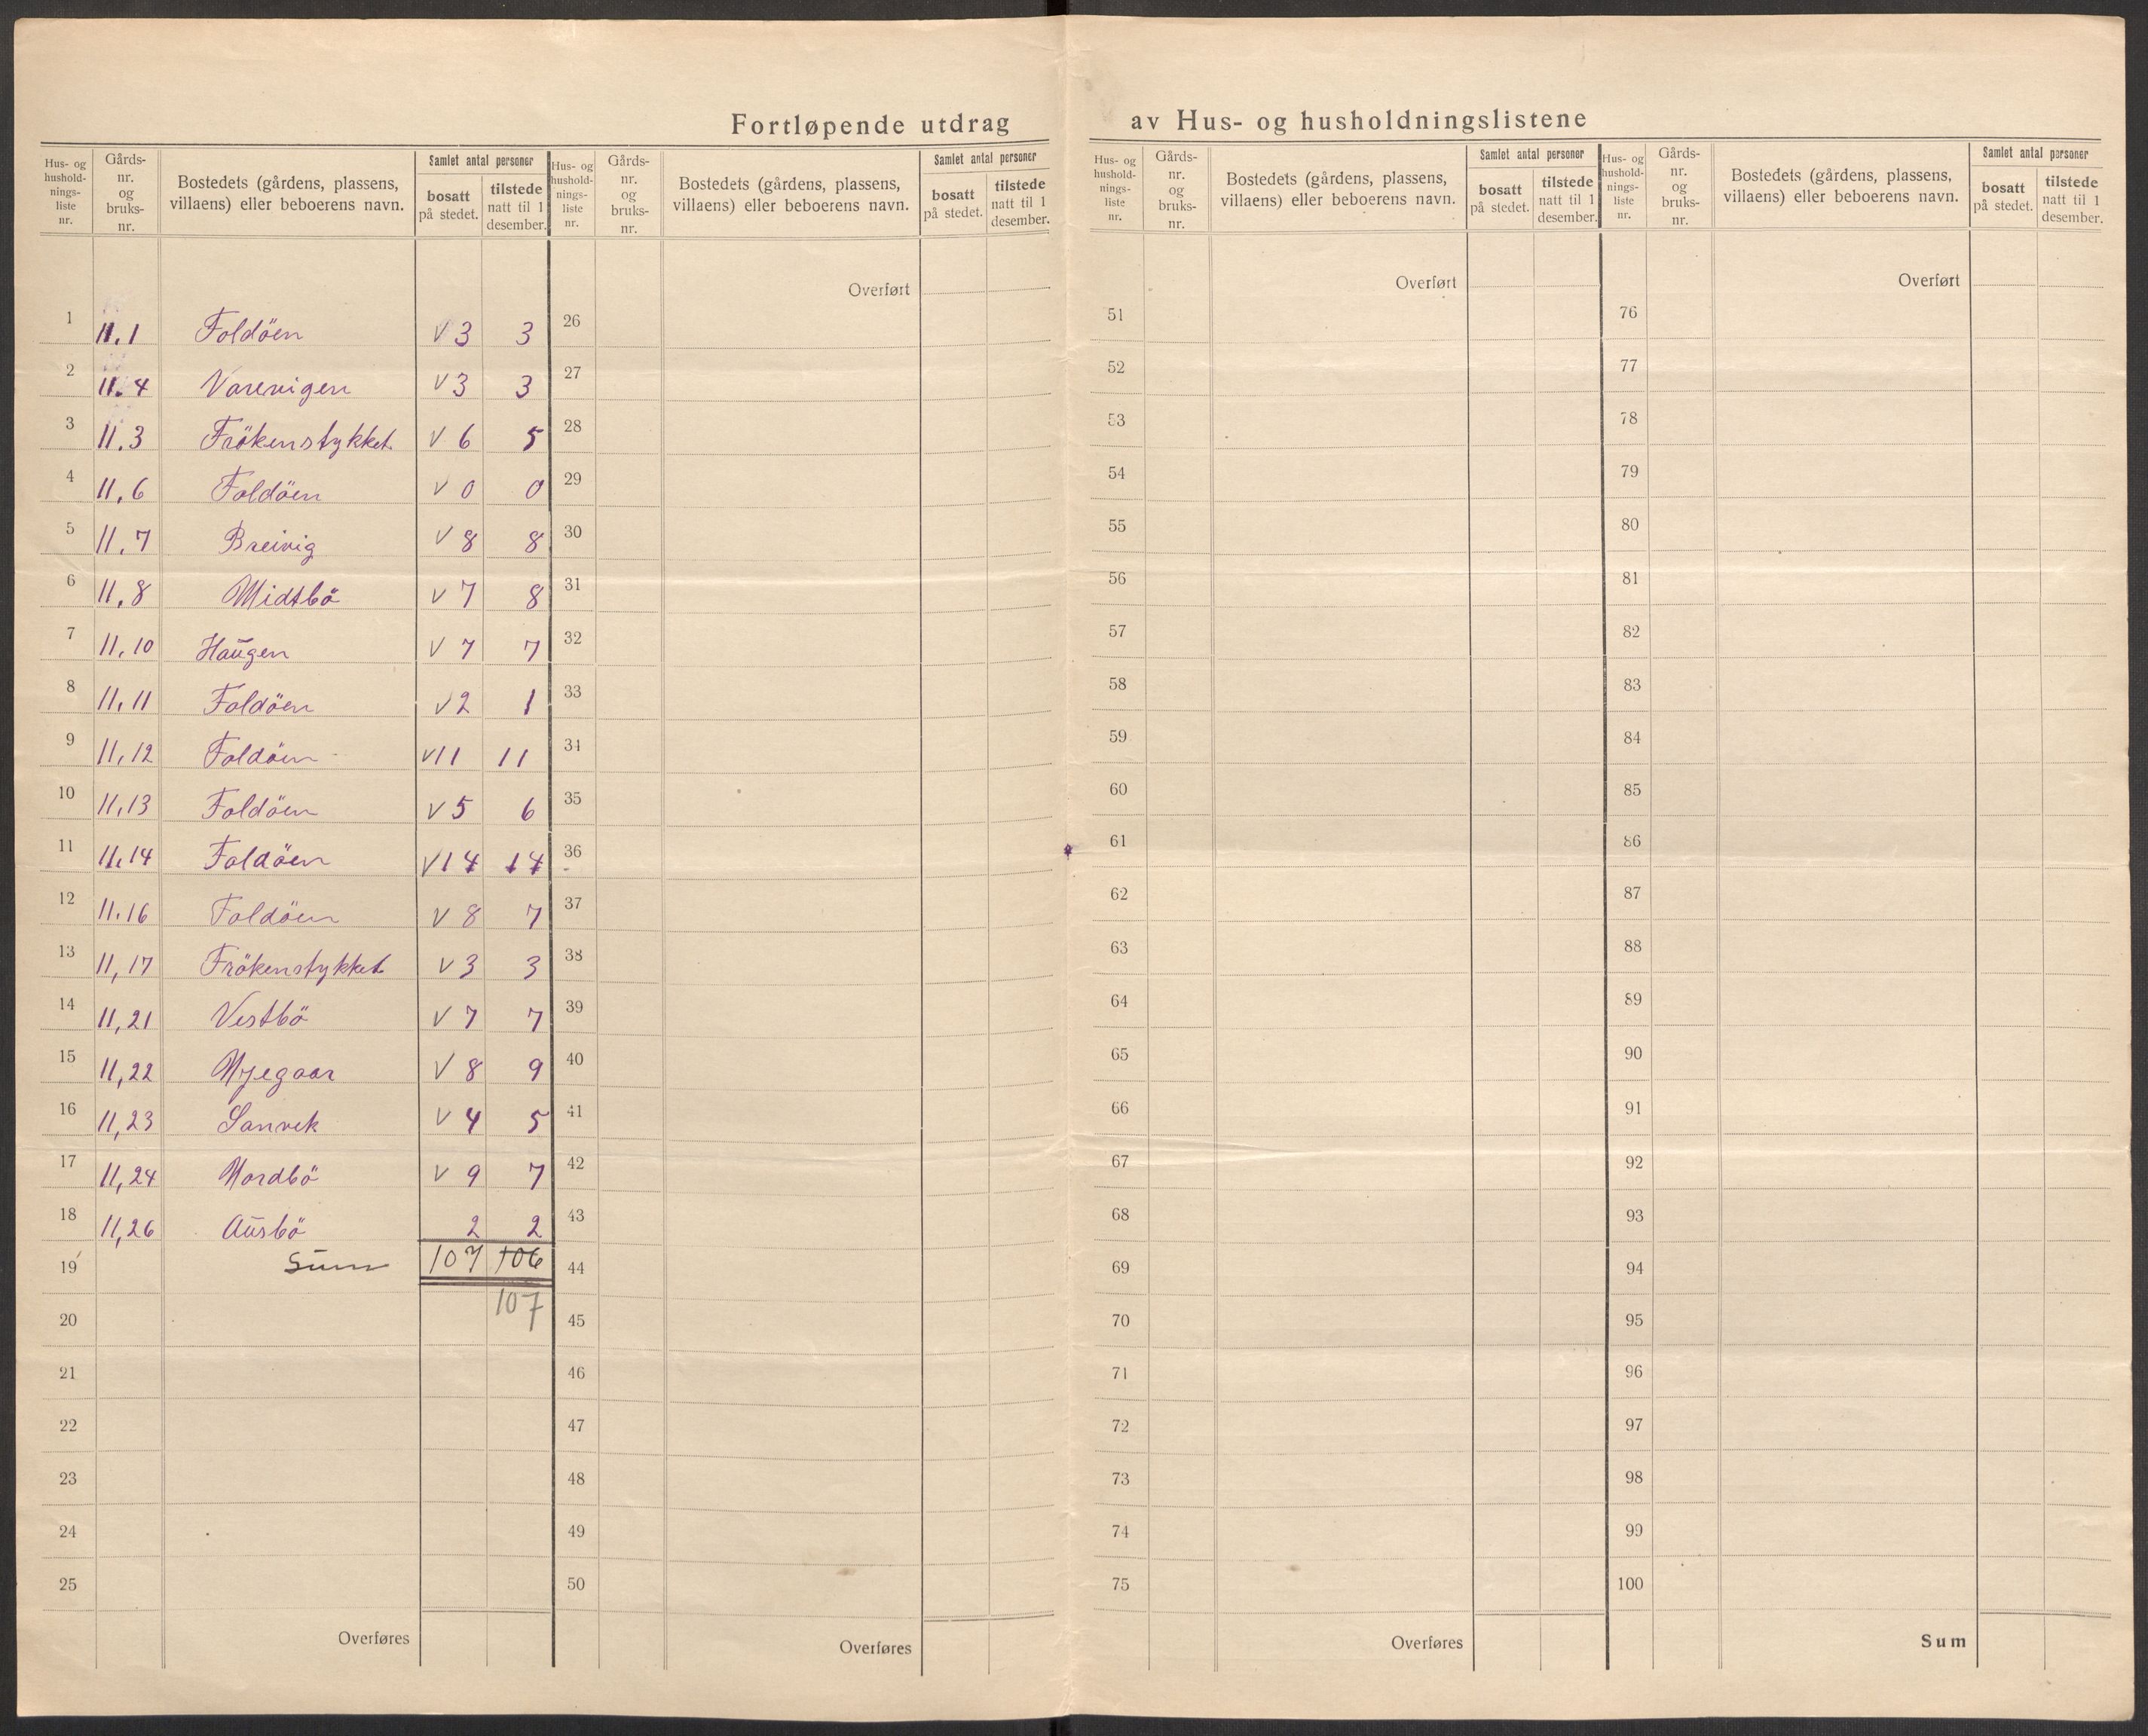 Fortløpende utdrag av Hus- og husholdningslistene
Hus- og hushold- nings- liste nr.
Gårds- nr. og bruks- nr.
Bostedets (gårdens, plassens, villaens) eller beboerens navn.
Samlet antal personer
bosatt på stedet.
tilstede natt til 1 desember.
1 11.1 Foldöen V 3 3
2 11.4 Varevigen V 3 3
3 11.3 Frökenstykket V 6 5
4 11.6 Foldöen V 0 0
5 11.7 Breivig V 8 8
6 11.8 Midtbö V 7 8
7 11.10 Haugen V 7 7
8 11.11 Foldöen V 2 1
9 11.12 Foldöen V 11 11
10 11.13 Foldöen V 5 6
11 11.14 Foldöen V 14 14
12 11.16 Foldöen V 8 7
13 11,17 Frökenstykket V 3 3
14 11,21 Vestbö V 7 7
15 11,22 Myegaar V 8 9
16 11,23 Sanvik V 4 5
17 11,24 Nordbö V 9 7
18 11,26 Ausbö 2 2
19 Sum 107 106
20 107
21
22
23
24
25
Overføres
Hus- og hushold- nings- liste nr.
Gårds- nr. og bruks- nr.
Bostedets (gårdens, plassens, villaens) eller beboerens navn.
Samlet antal personer
bosatt på stedet.
tilstede natt til 1 desember.
Overført
26
27
28
29
30
31
32
33
34
35
36
37
38
39
40
41
42
43
44
45
46
47
48
49
50
Overføres
Hus- og hushold- nings- liste nr.
Gårds- nr. og bruks- nr.
Bostedets (gårdens, plassens, villaens) eller beboerens navn.
Samlet antal personer
bosatt på stedet.
tilstede natt til 1 desember.
Overført
51
52
53
54
55
56
57
58
59
60
61
62
63
64
65
66
67
68
69
70
71
72
73
74
75
Overføres
Hus- og hushold- nings- liste nr.
Gårds- nr. og bruks- nr.
Bostedets (gårdens, plassens, villaens) eller beboerens navn.
Samlet antal personer
bosatt på stedet.
tilstede natt til 1 desember.
Overført
76
77
78
79
80
81
82
83
84
85
86
87
88
89
90
91
92
93
94
95
96
97
98
99
100
Sum